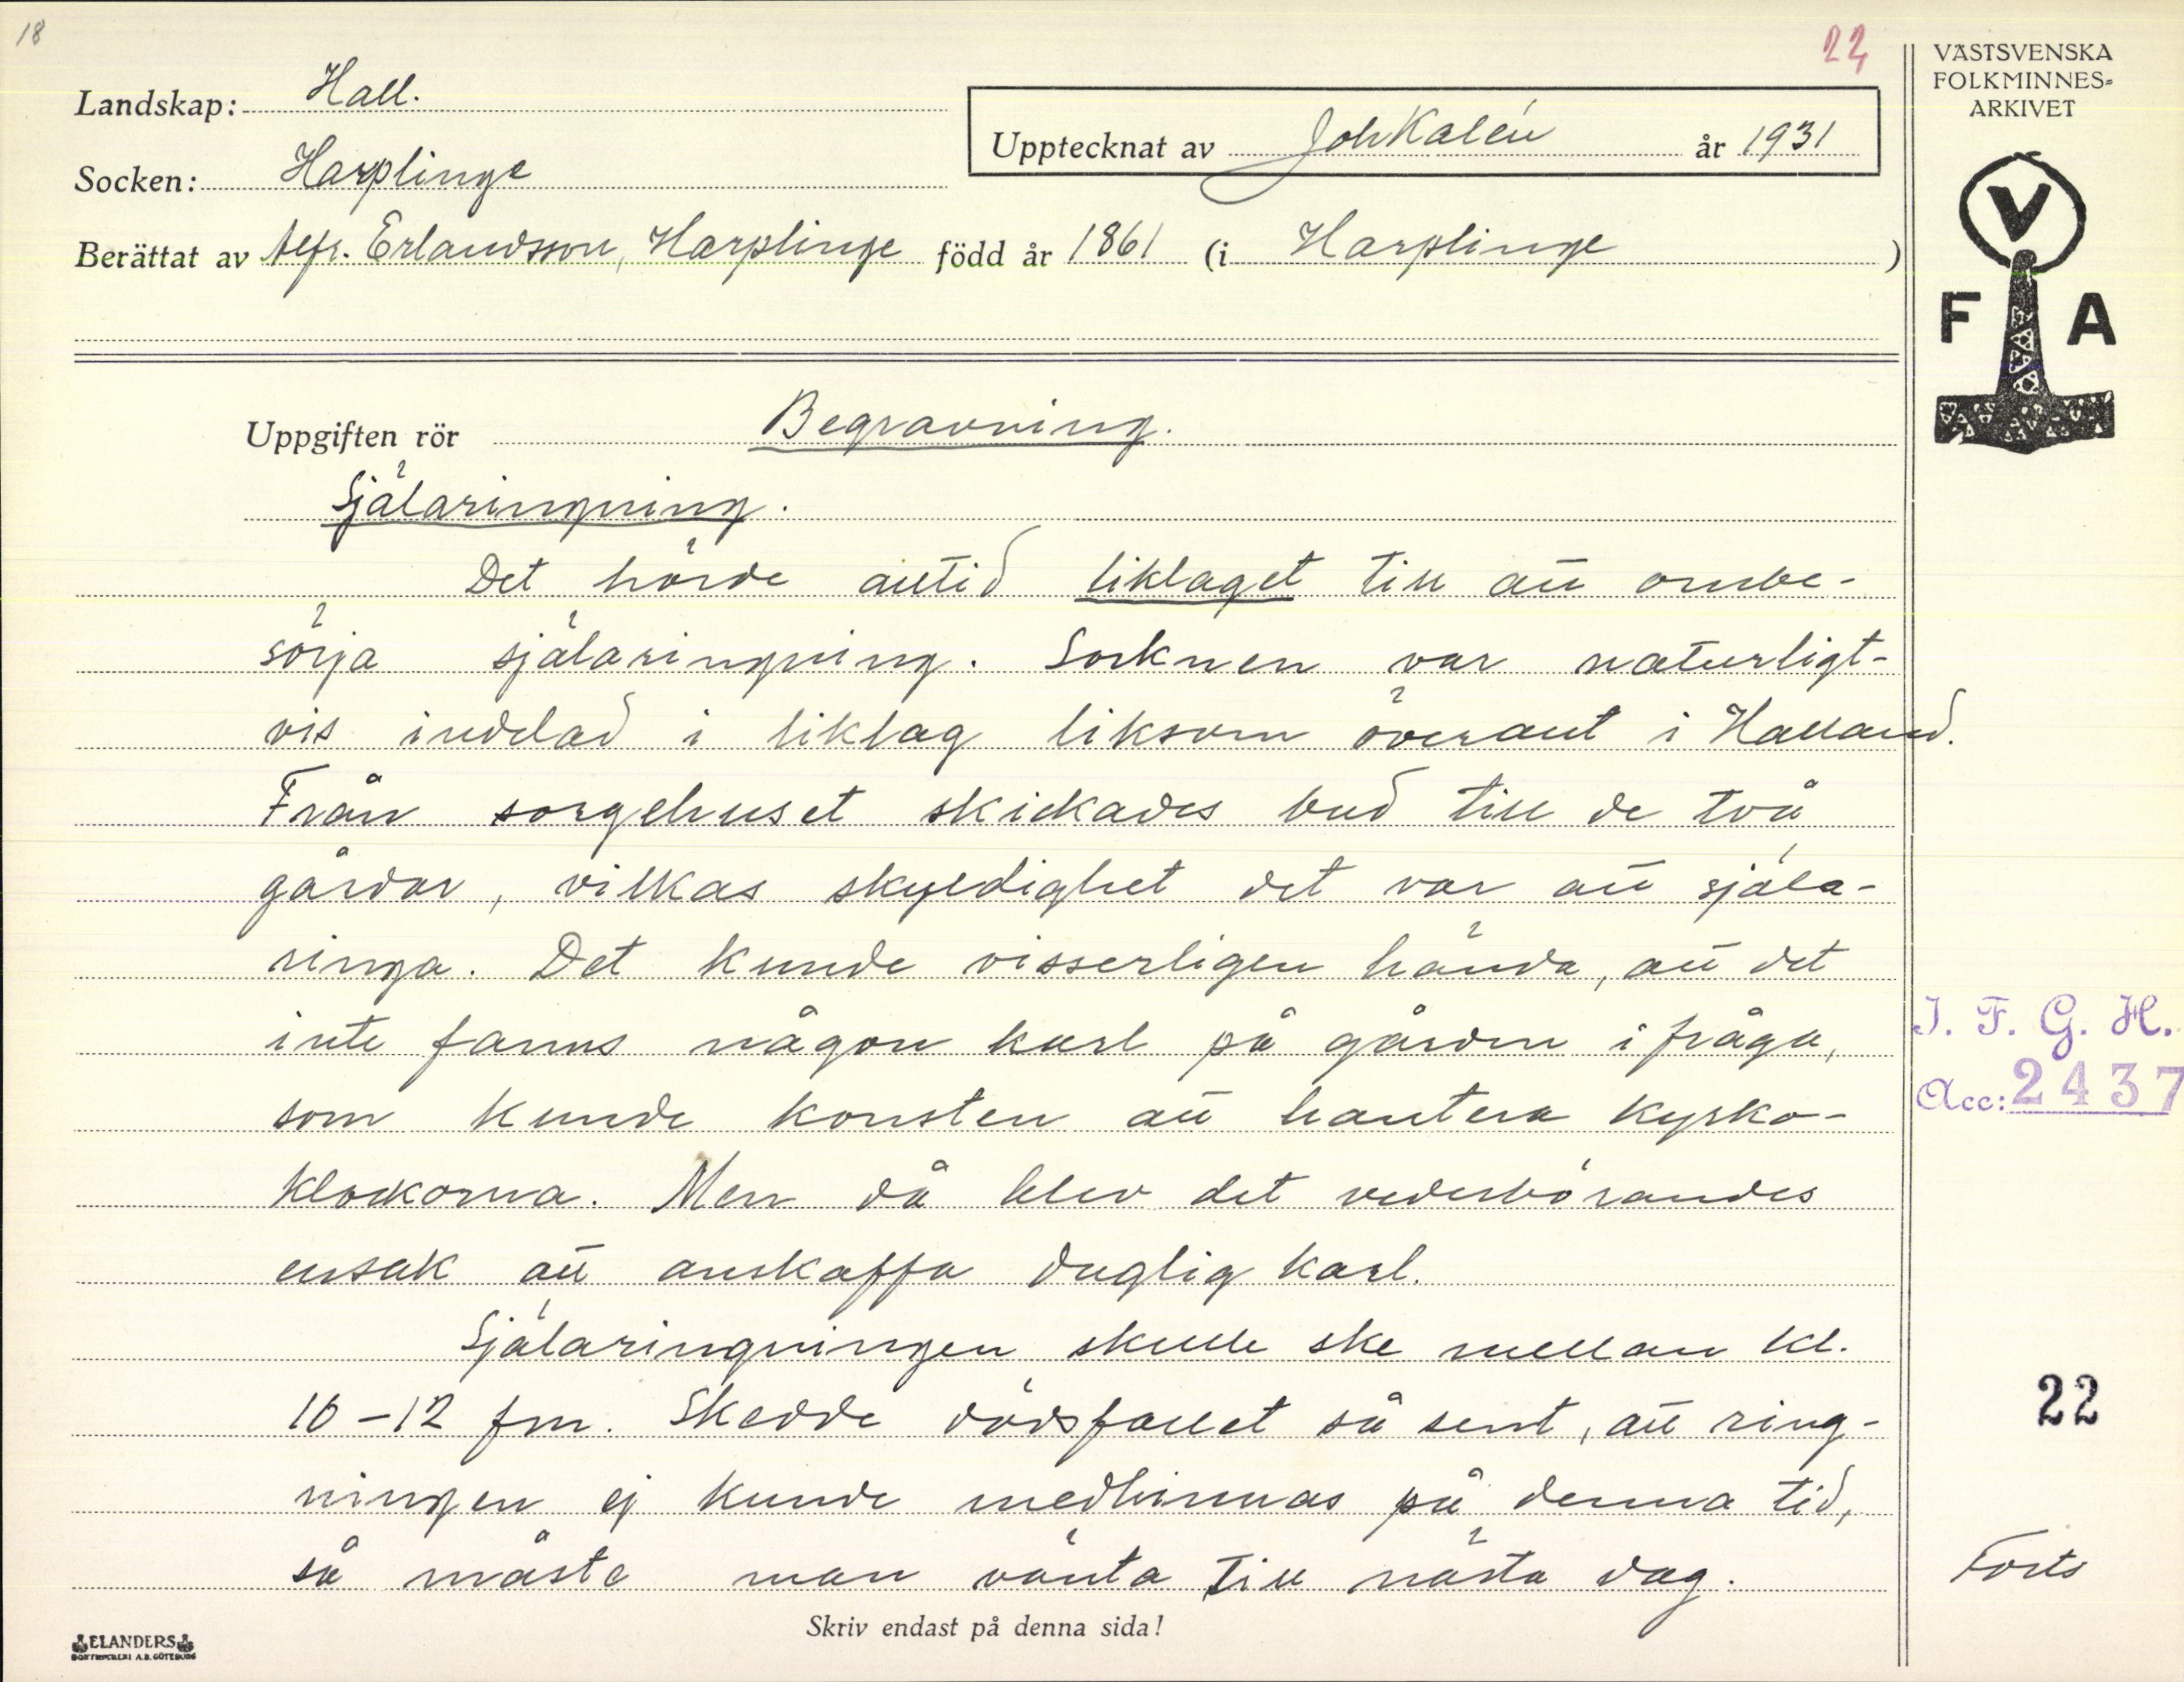 18
22
Landskap: Hall.
Socken: Harplinge
Upptecknat av Joh Kalén år 1931
Berättat av Alfr. Erlandsson, Harplinge född år 1861 (i Harplinge)
VÄSTSVENSKA
FOLKMINNES-
ARKIVET
V
F A
Uppgiften rör Begravning.
Själaringning.
Det hörde alltid liklaget till att ombe-
sörja själaringning. Socknen var naturligt-
vis indelad i liklag liksom överallt i Halland.
Från sorgehuset skickades bud till de två
gårdar, vilkas skyldighet det var att själa-
ringa. Det kunde visserligen hända, att det
inte fanns någon karl på gården i fråga,
som kunde konsten att hantera kyrko-
klockorna. Men då blev det vederbörandes
ensak att anskaffa duglig karl.
Själaringningen skulle ske mellan kl.
10-12 fm. Skedde dödsfallet så sent, att ring-
ningen ej kunde medhinnas på denna tid,
så måste man vänta till nästa dag.
I. F. G. H.
Acc: 2437
22
Forts
Skriv endast på denna sida!
ELANDERS
BOKTRYCKERI A.B. GÖTEBORG